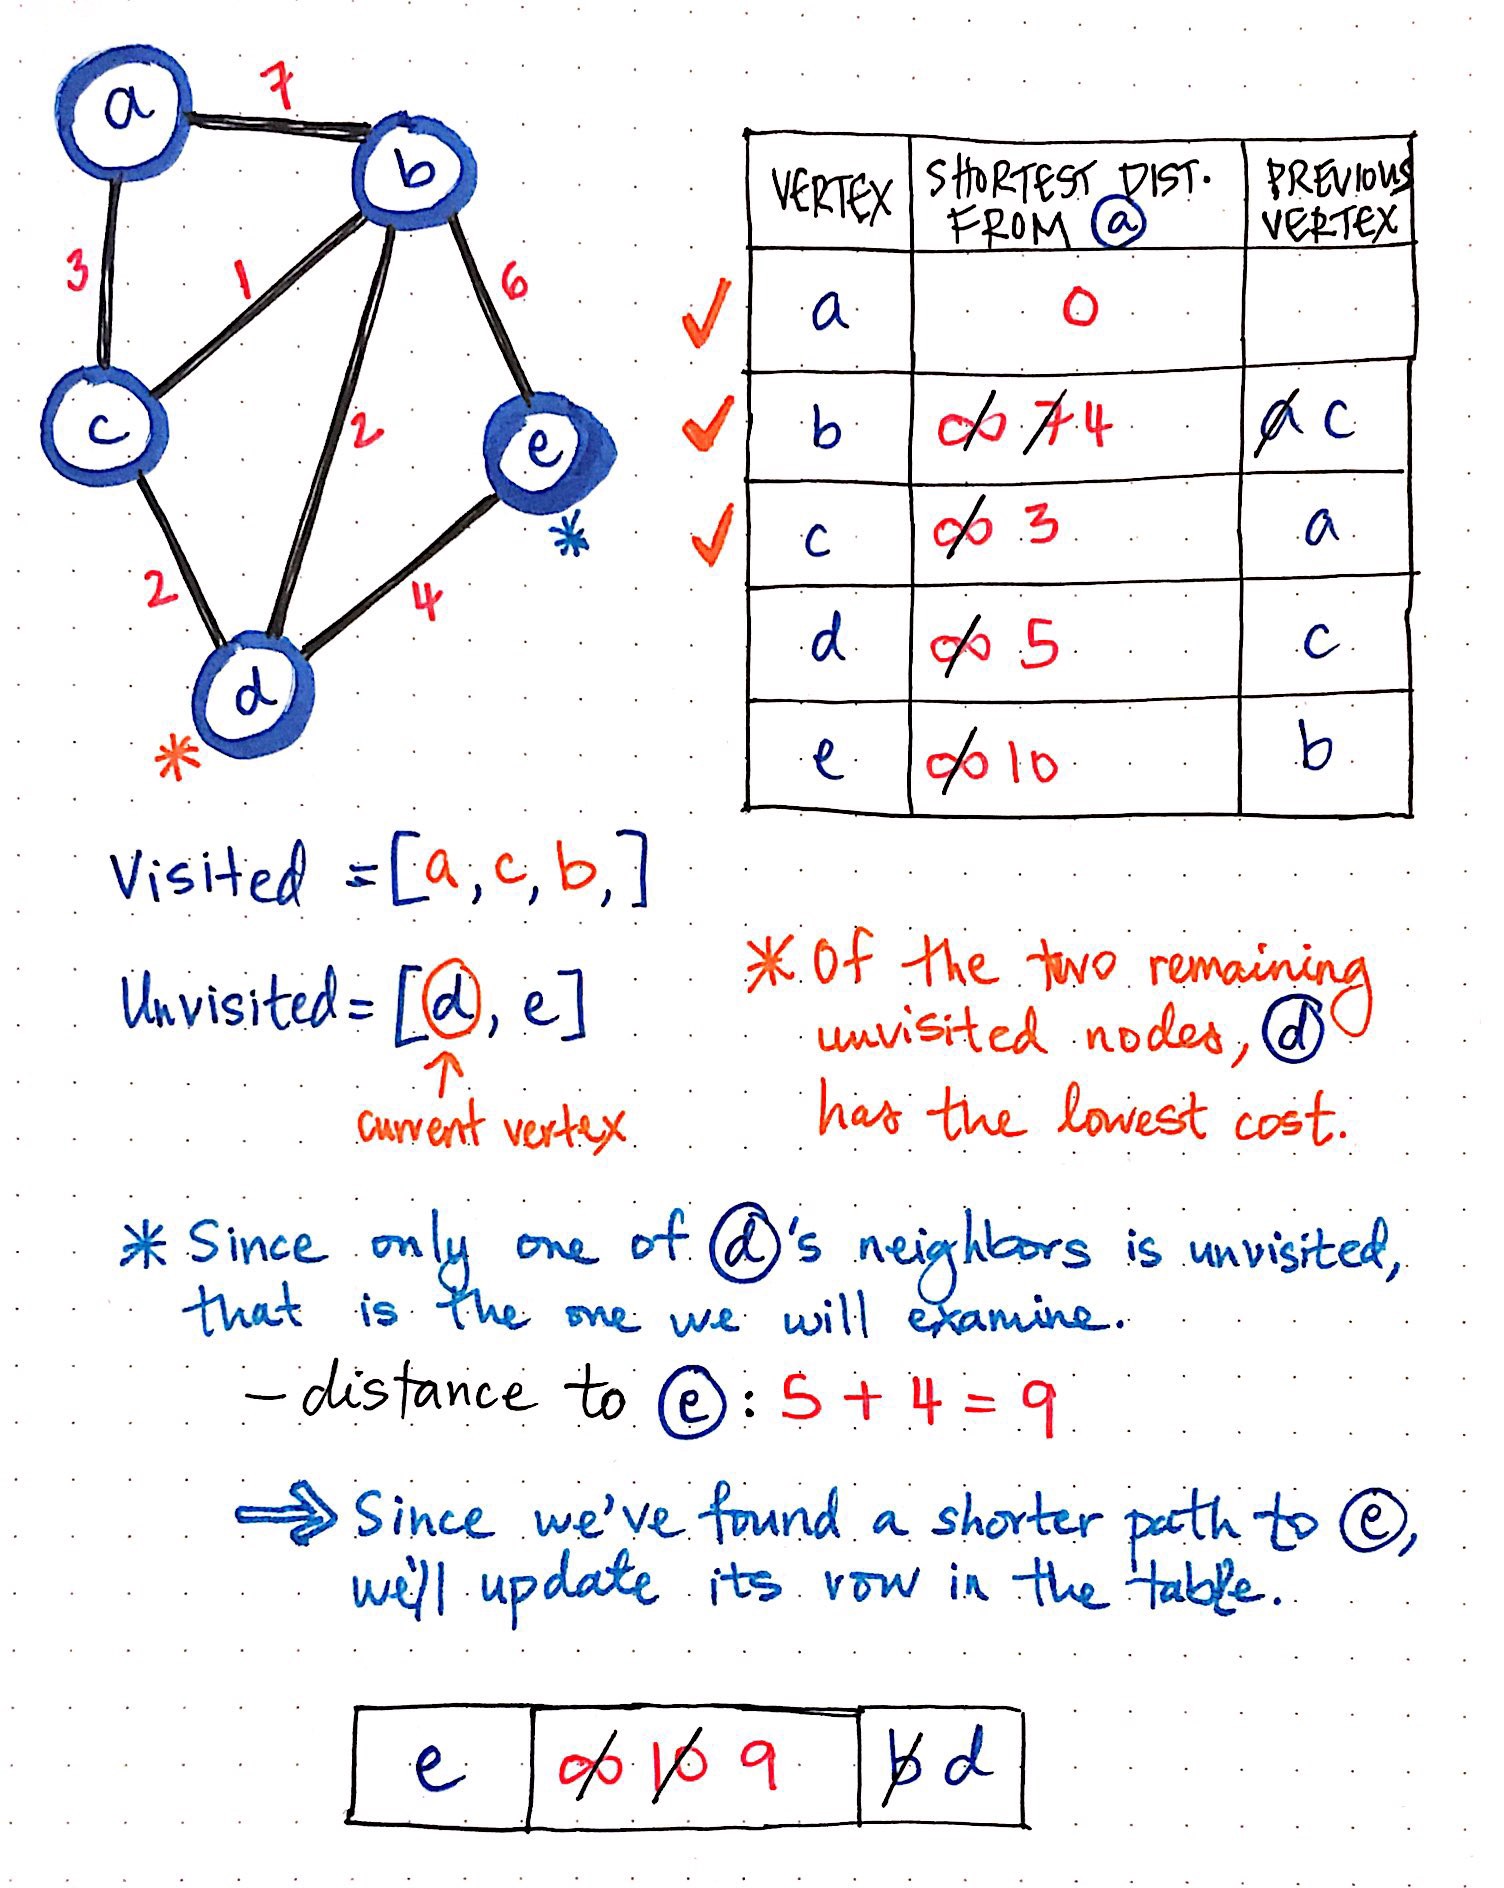 a
7
b
3
1
6
c
2
e
*
2
4
d
*
VERTEX SHORTEST DIST. FROM a PREVIOUS VERTEX
✓ a 0
✓ b ∞ 7 4 a c
✓ c ∞ 3 a
d ∞ 5 c
e ∞ 10 b
Visited = [a, c, b, ]
Unvisited = [d, e]
↑
current vertex
* Of the two remaining
unvisited nodes, d
has the lowest cost.
* Since only one of d's neighbors is unvisited,
that is the one we will examine.
– distance to e : 5 + 4 = 9
⇒ Since we've found a shorter path to e,
we'll update its row in the table.
e ∞ 10 9 b d